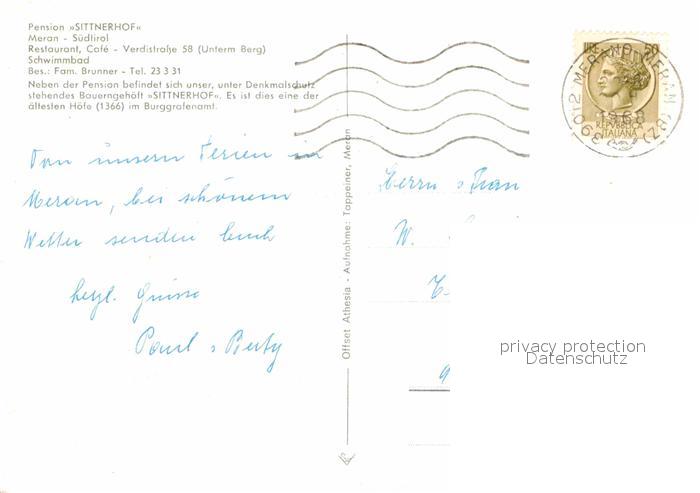 Pension »SITTNERHOF«
Meran - Südtirol
Restaurant, Café - Verdistraße 58 (Unterm Berg)
Schwimmbad
Bes.: Fam. Brunner - Tel. 23 3 31
Neben der Pension befindet sich unser, unter Denkmalschutz
stehendes Bauerngehöft »SITTNERHOF«. Es ist dies eine der
ältesten Höfe (1366) im Burggrafenamt.
Von unsern Ferien in
Meran, bei schönem
Wetter senden Euch
herzl. Grüsse
Paul s Berty
Offset Athesia - Aufnahme: Tappeiner, Meran
LIRE 50
REPVBBLICA
ITALIANA
39012 MERANO MERAN (BZ)
1968
Herrn s Frau
W.
privacy protection
Datenschutz